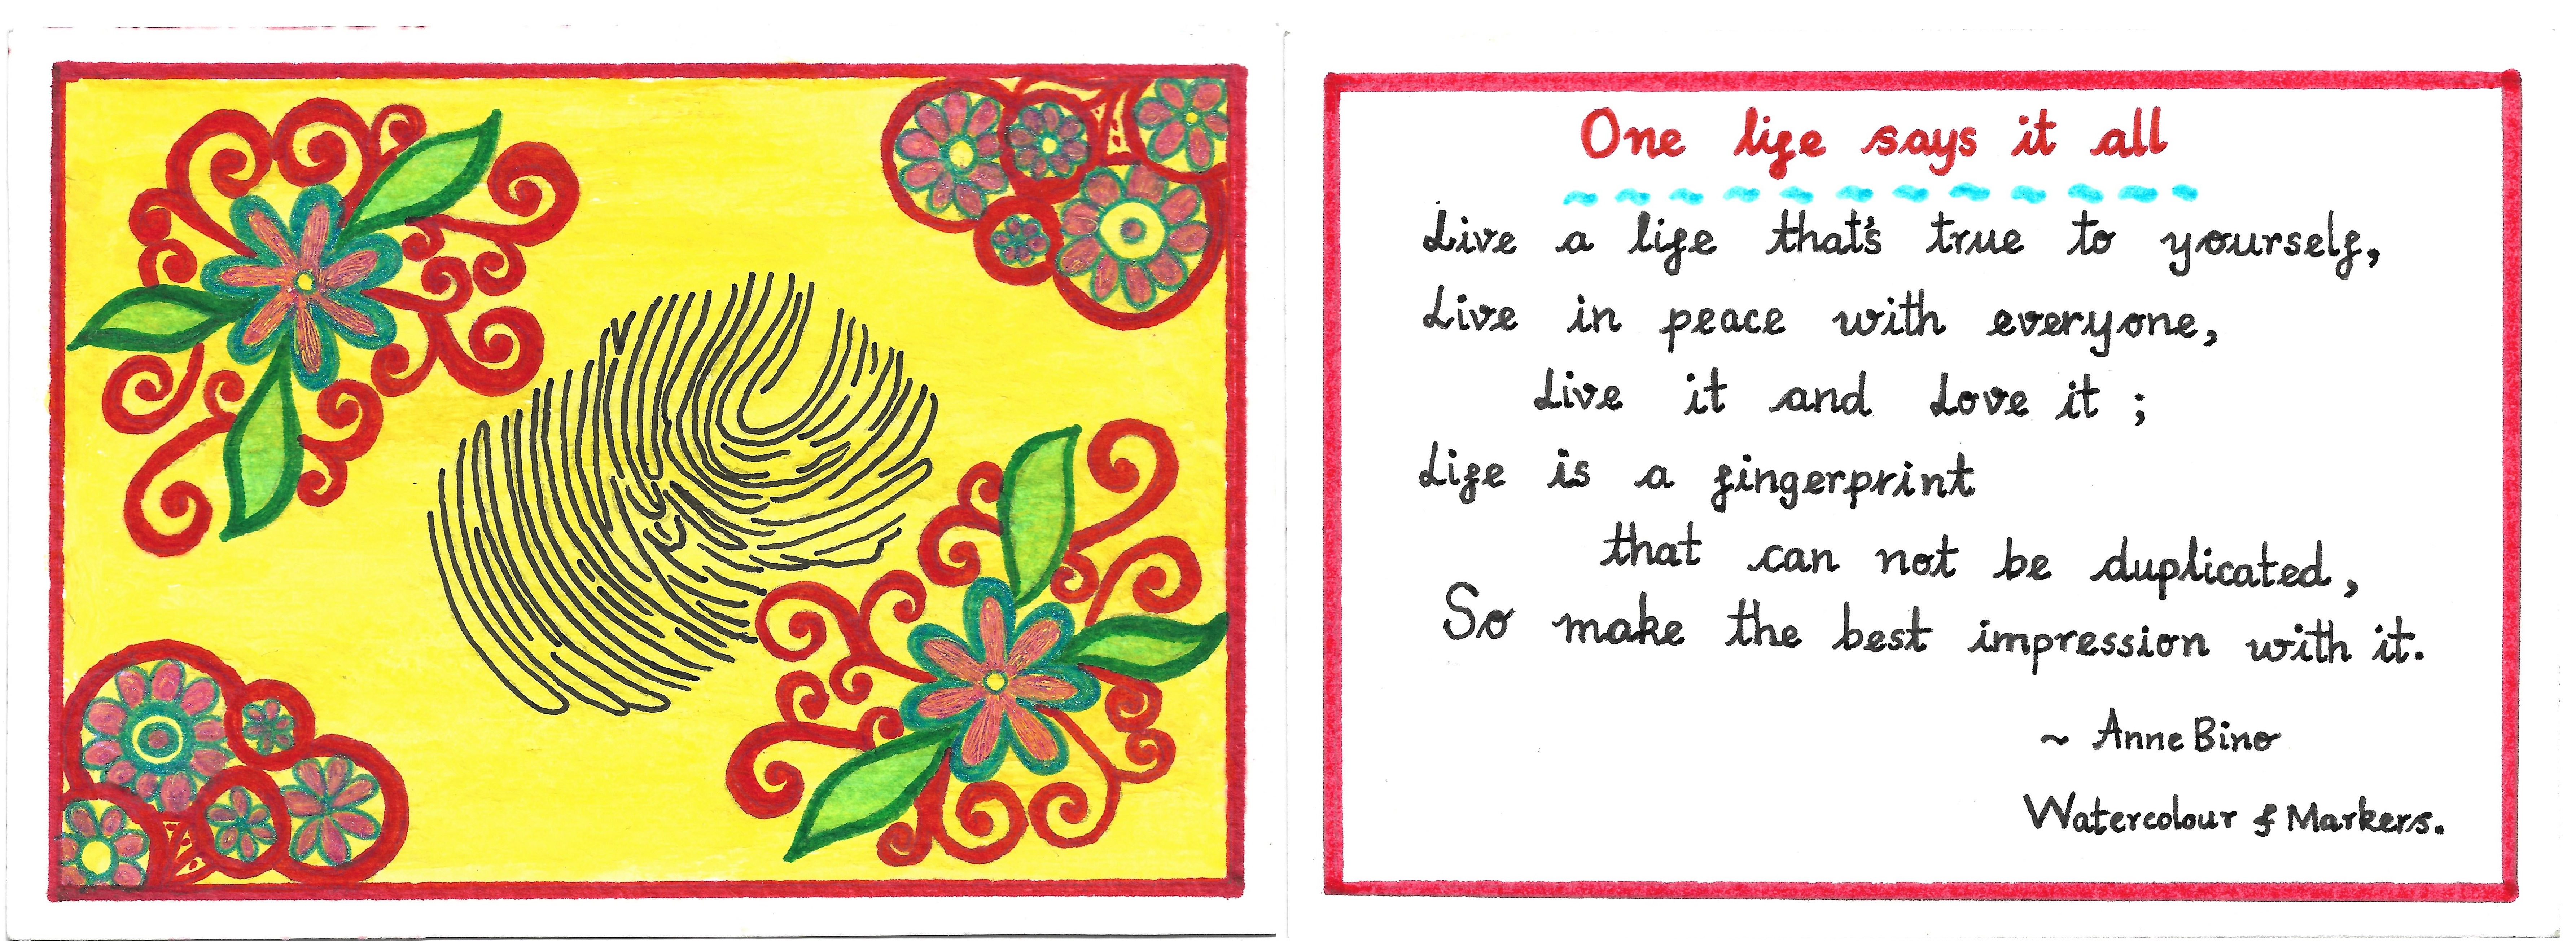 One life says it all
Live a life that's true to yourself,
Live in peace with everyone,
Live it and Love it ;
Life is a fingerprint
that can not be duplicated,
So make the best impression with it.
~ Anne Bino
Watercolour & Markers.